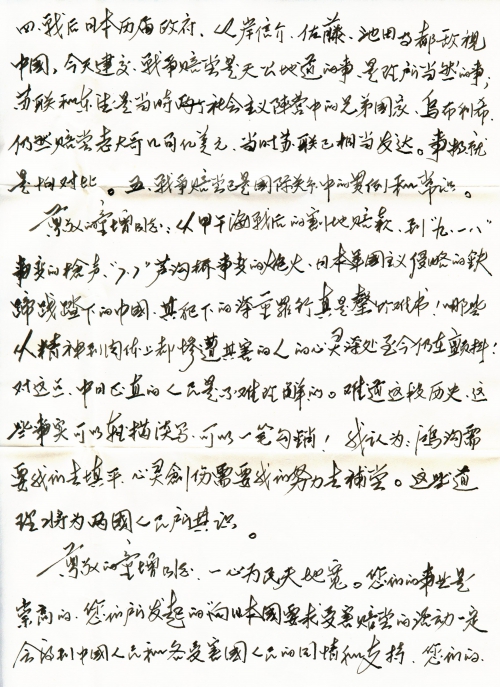 四、战后日本历届政府，从岸信介、佐藤、池田等都敌视
中国，今天建交，战争赔偿是天公地道的事，是理所当然的事，
苏联和东德是当时两个社会主义阵营中的兄弟国家，乌布利希
仍然赔偿老大哥几百亿美元，当时苏联已相当发达。事物就
是相对比。五、战争赔偿已是国际关系中的贯例和常识。
尊敬的童增同志：从甲午海战后的割地赔款，到“九·一八”
事变的枪声，“7·7”芦沟桥事变的炮火，日本军国主义侵略的铁
蹄践踏下的中国，其犯下的深重罪行真是罄竹难书！哪些
从精神到肉体上都惨遭其害的人的心灵深处至今仍在颤抖！
对这点，中日正直的人民是不难理解的。难道这段历史、这
些事实可以轻描淡写、可以一笔勾销！我认为，鸿沟需
要我们去填平，心灵创伤需要我们努力去补偿。这些道
理将为两国人民所共识。
尊敬的童增同志，一心为民天地宽。您们的事业是
崇高的，您们所发起的向日本国要求受害赔偿的活动一定
会得到中国人民和各受害国人民的同情和支持，您们的